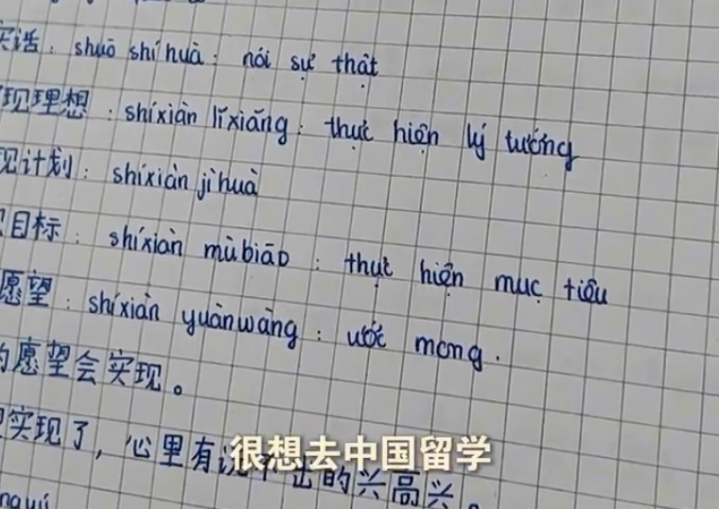 实话：shuō shí huà：nói sự thật
现理想：shíxiàn lǐxiǎng：thực hiện lý tưởng
现计划：shíxiàn jìhuà
目标：shíxiàn mùbiāo：thực hiện mục tiêu
愿望：shíxiàn yuànwàng：ước mong.
的愿望会实现。
实现了，心里有说不出的兴高兴。
很想去中国留学